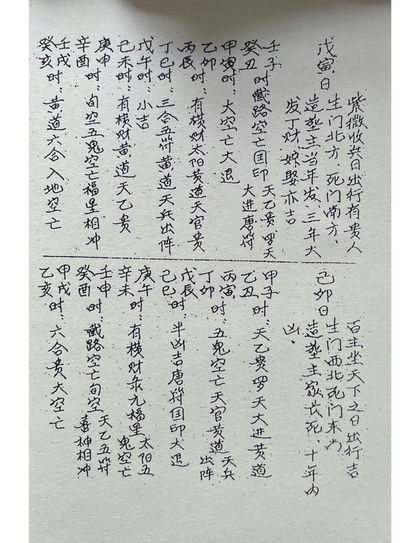 戊寅日
紫微收煞日出行有贵人
生门北方,死门南方,
造葬主当年发、三年大
发丁财、嫁娶亦吉
壬子时:截路空亡国印 天乙贵罗天
癸丑 大进唐符
甲寅时:大空亡大退
乙卯
丙辰时:有横财太阳黄道天官贵
丁巳时:三合五符黄道天兵出阵
戊午时:小吉
己未时:有横财黄道天乙贵
庚申
辛酉时:旬空五鬼空亡福星相冲
壬戌时:
癸亥时:黄道六合入地空亡
己卯日
百主坐天下之日出行吉
生门西北死门东南
造葬主家长死、十年内
凶。
甲子时:天乙贵罗天大进黄道
乙丑
丙寅时:五鬼空亡天官黄道 天兵
丁卯 出阵
戊辰时:半凶吉唐符国印大退
己巳
庚午时:有横财 福星 太阳五
辛未 鬼空亡
壬申时:截路空亡旬空 天乙五符
癸酉 喜神相冲
甲戌时:六合贵大空亡
乙亥